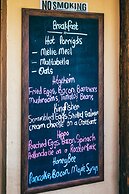 NO SMOKING
Breakfast
Hot Porridge
- Mielie Meal
- Maltabella
- Oats
Fried Eggs, Bacon, Bantbers
Mushrooms, Tomatos, Beans
Kingfisher
Scrambled Eggs, Smoked Salmon
cream cheese on a Croissant
Hippo
Poached Eggs, Bacon, Spinach
Hollandaise on a
HoneyBee
Pancakes, Bacon, Maple Syrup